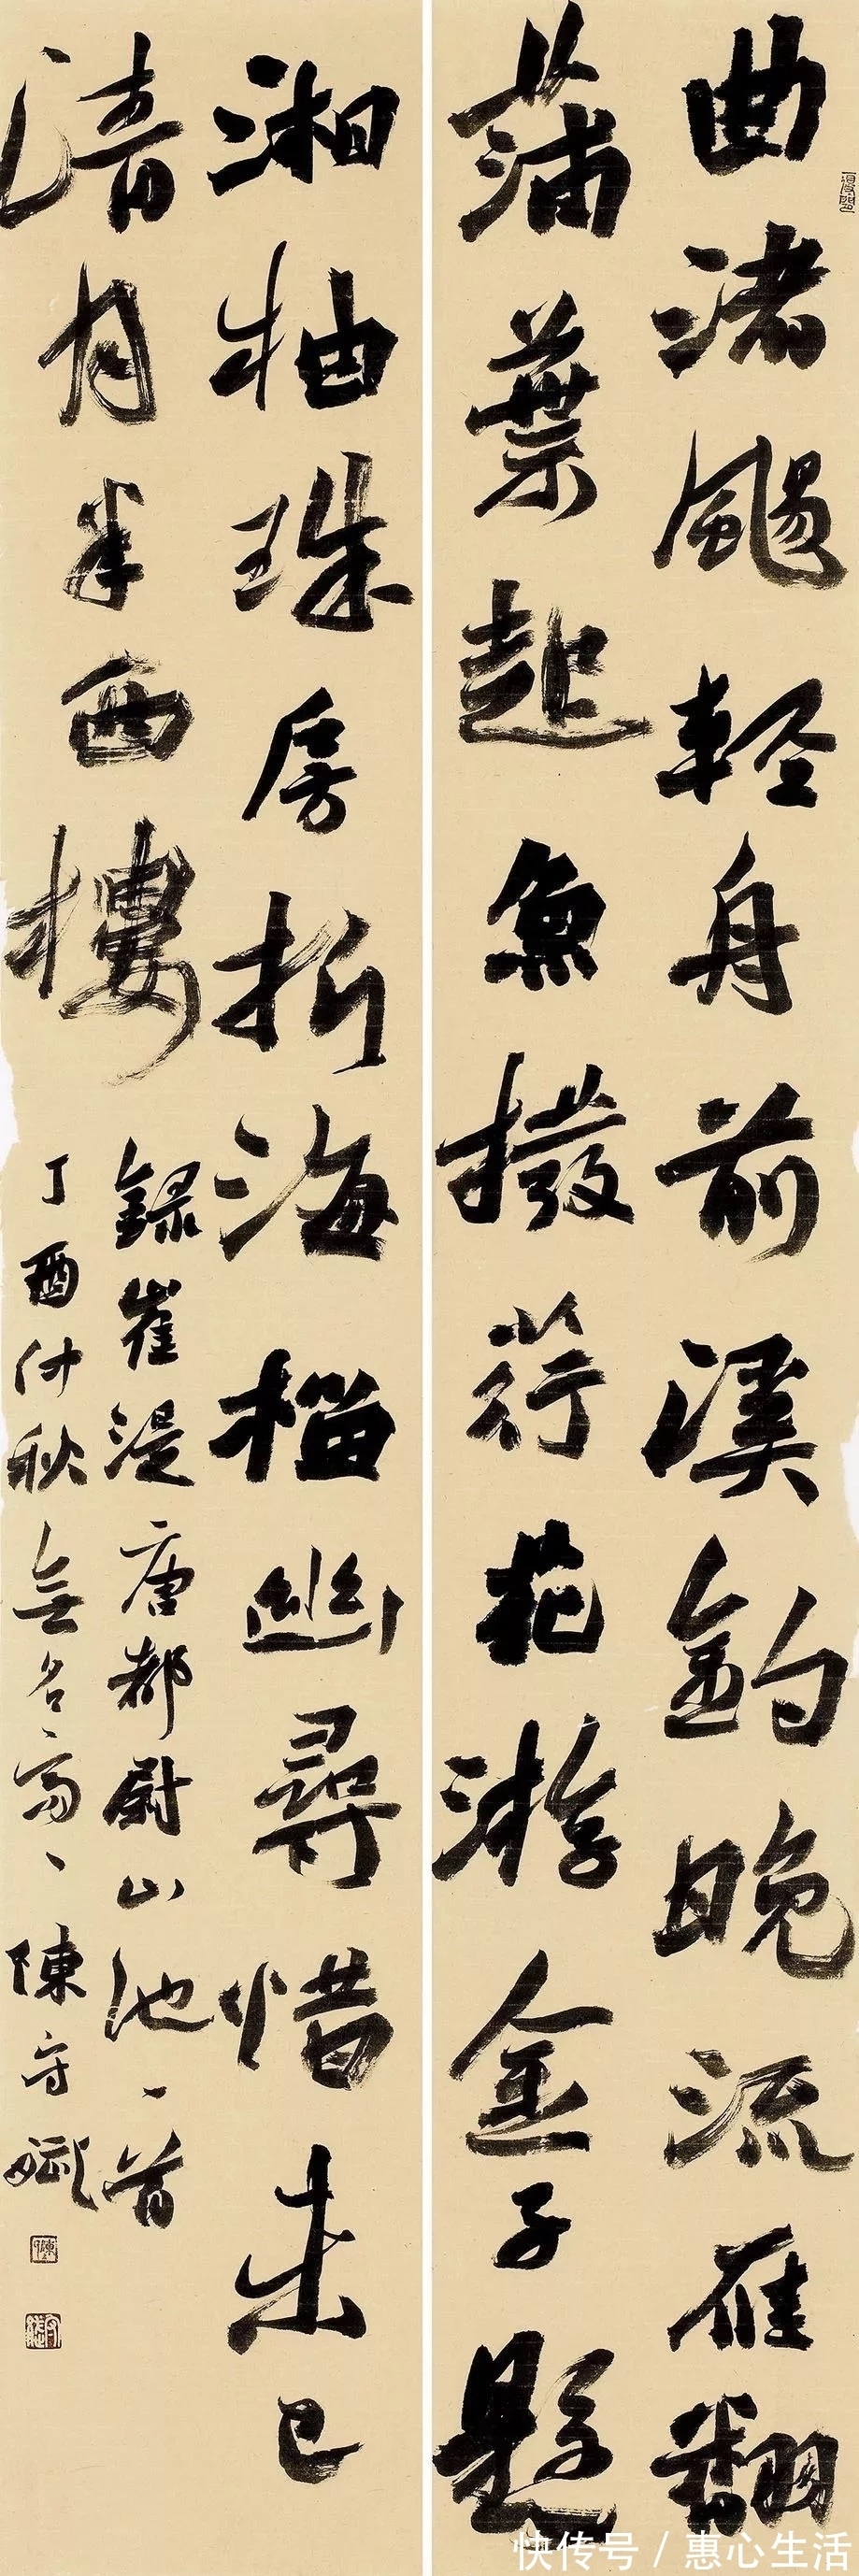 曲渚颺輕舟前溪釣晚流雁翻
蒲葉起魚撥荇花游金子懸
湘柚珠房折海榴幽尋惜未已
清月半西樓
錄崔湜唐都尉山池一首
丁酉仲秋無名齋陳守
快传号 / 惠心生活